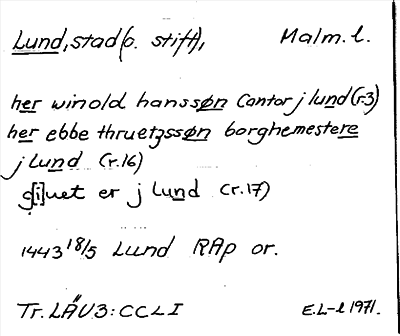 Lund, stad (o. stift), Malm. l.
her winold hanssøn Cantor j lund (r.3)
her ebbe thruetzssøn borghemestere
j Lund (r.16)
g[i]uet er j Lund (r.17)
1443 18/5 Lund RAp or.
Tr. LÄU3: CCLI E.L-l 1971.